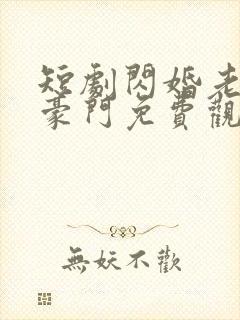 短劇閃婚老
豪門免費觀
無妖不歡